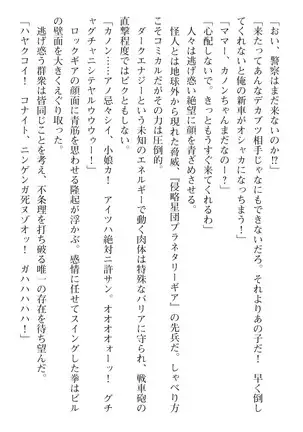 「おい、警察はまだ来ないのか⁉」
「来たってあんなデカブツ相手じゃなにもできないだろ。それよりあの子だ！　早く倒し
てくれないと俺の新車がオシャカになっちまう！」
「ママー、カノンちゃんまだなのー？」
「心配しないで。きっともうすぐ来てくれるわ」
人々は逃げ惑い絶望に顔を青ざめさせる。
怪人とは地球外から現れた脅威、『侵略星団プラネタリーギア』の先兵だ。しゃべり方
こそコミカルだがその力は圧倒的。
ダークエナジーという未知のエネルギーで動く肉体は特殊なバリアに守られ、戦車砲の
直撃程度ではビクともしない。
「カノン……アノ忌々シイ、小娘カ！　アイツハ絶対ニ許サン。オオオオォーッ！　グチ
ャグチャニシテヤルウウウゥー！」
ロックギアの顔面に青筋を思わせる隆起が浮かぶ。感情に任せてスイングした拳はビル
の壁面を大きくえぐり取った。
逃げ惑う群衆は皆同じことを考え、不条理を打ち破る唯一の存在を待ち望んだ。
「ハヤクコイ！　コナイト、ニンゲンガ死ヌゾオッ！　ガハハハハハ！」